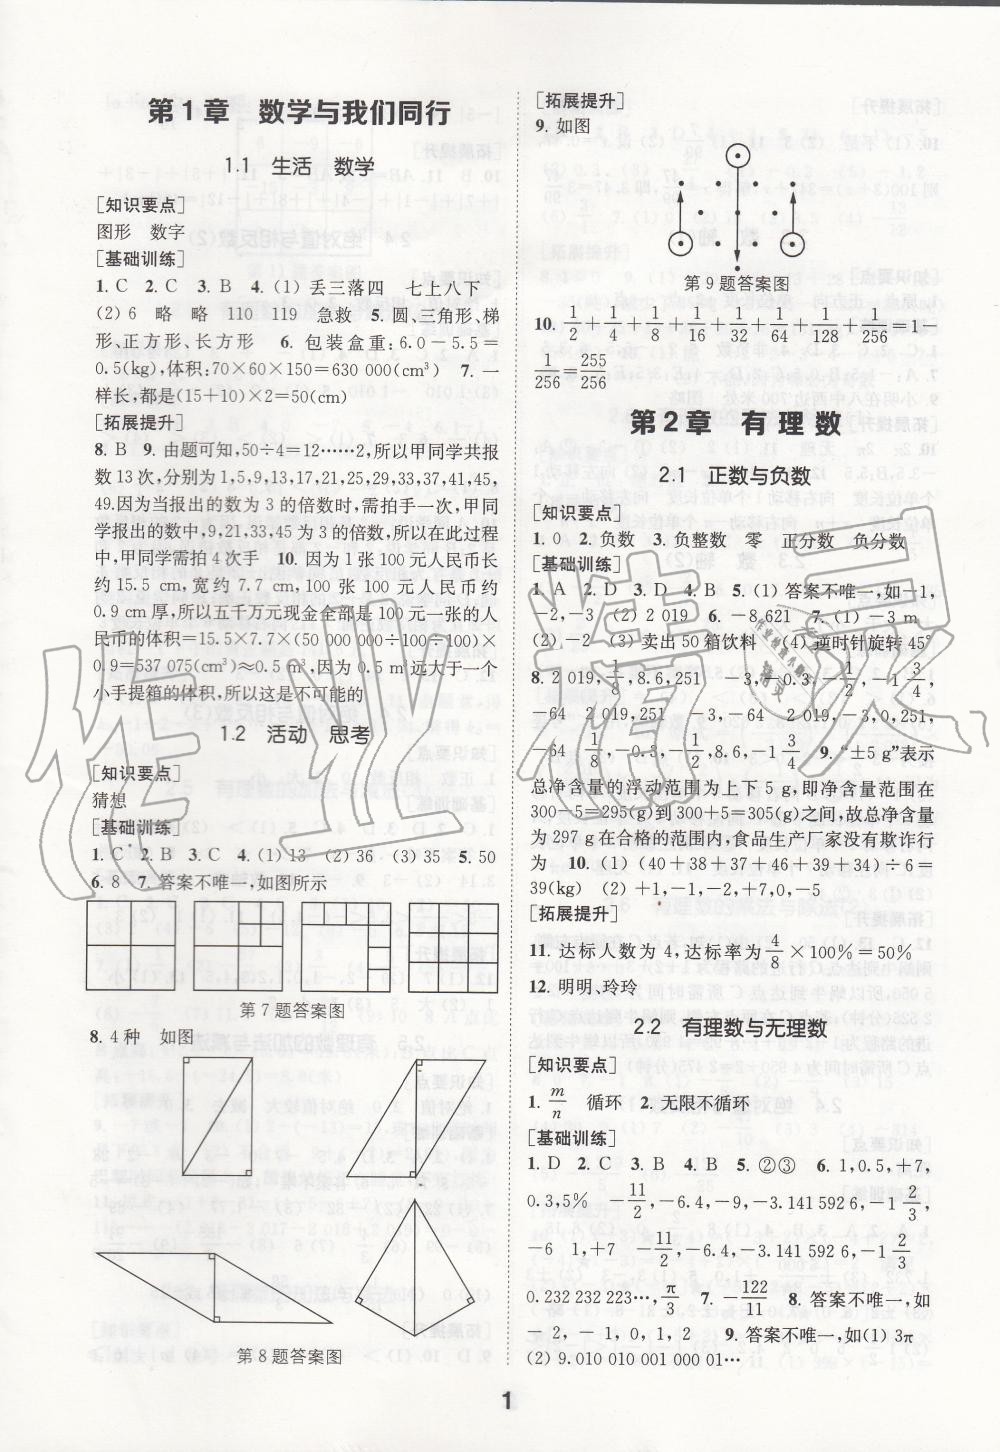 第1章 数学与我们同行
1.1 生活 数学
[知识要点]
图形 数字
[基础训练]
1. C 2. C 3. B 4. (1) 丢三落四 七上八下
(2) 6 略 略 110 119 急救 5. 圆、三角形、梯
形、正方形、长方形 6. 包装盒重:6.0-5.5=
0.5(kg),体积:70×60×150=630 000(cm³) 7. 一
样长,都是(15+10)×2=50(cm)
[拓展提升]
8. B 9. 由题可知,50÷4=12……2,所以甲同学共报
数13次,分别为1,5,9,13,17,21,25,29,33,37,41,45,
49.因为当报出的数为3的倍数时,需拍手一次,甲同
学报出的数中,9,21,33,45为3的倍数,所以在此过程
中,甲同学需拍4次手 10. 因为1张100元人民币长
约15.5 cm,宽约7.7 cm,100张100元人民币约
0.9 cm厚,所以五千万元现金全部是100元一张的人
民币的体积=15.5×7.7×(50 000 000÷100÷100)×
0.9=537 075(cm³)≈0.5 m³,因为0.5 m³远大于一个
小手提箱的体积,所以这是不可能的
1.2 活动 思考
[知识要点]
猜想
[基础训练]
1. C 2. B 3. C 4. (1) 13 (2) 36 (3) 35 5. 50
6. 8 7. 答案不唯一,如图所示
第7题答案图
8. 4种 如图
第8题答案图
[拓展提升]
9. 如图
第9题答案图
10. 1/2+1/4+1/8+1/16+1/32+1/64+1/128+1/256=1-
1/256=255/256
第2章 有理数
2.1 正数与负数
[知识要点]
1. 0 2. 负数 3. 负整数 零 正分数 负分数
[基础训练]
1. A 2. D 3. D 4. B 5. (1) 答案不唯一,如-1,
-2,-3 (2) 2 019 6. -8,621 7. (1) -3 m
(2) -2 (3) 卖出50箱饮料 (4) 逆时针旋转45°
8. 2 019,1/8,8.6,251 -3,-0.3,-1/2,-1 3/4,
-64 2 019,251 -3,-64 2 019,-3,0,251,
-64 1/8,-0.3,-1/2,8.6,-1 3/4 9. “±5 g”表示
总净含量的浮动范围为上下5 g,即净含量范围在
300-5=295(g)到300+5=305(g)之间,故总净含量
为297 g在合格的范围内,食品生产厂家没有欺诈行
为 10. (1) (40+38+37+46+39+34)÷6=
39(kg) (2) +1,-1,-2,+7,0,-5
[拓展提升]
11. 达标人数为4,达标率为4/8×100%=50%
12. 明明、玲玲
2.2 有理数与无理数
[知识要点]
1. m/n 循环 2. 无限不循环
[基础训练]
1. D 2. C 3. B 4. B 5. ②③ 6. 1,0.5,+7,
0.3,5% -11/2,-6.4,-9,-3.141 592 6,-1 2/3,
-6 1,+7 -11/2,-6.4,-3.141 592 6,-1 2/3
0.232 232 223…,π/3 7. -122/11 8. 答案不唯一,如
-2,-1,0,1,2 9. 答案不唯一,如(1) 3π
(2) 9.010 010 001 000 01…
1